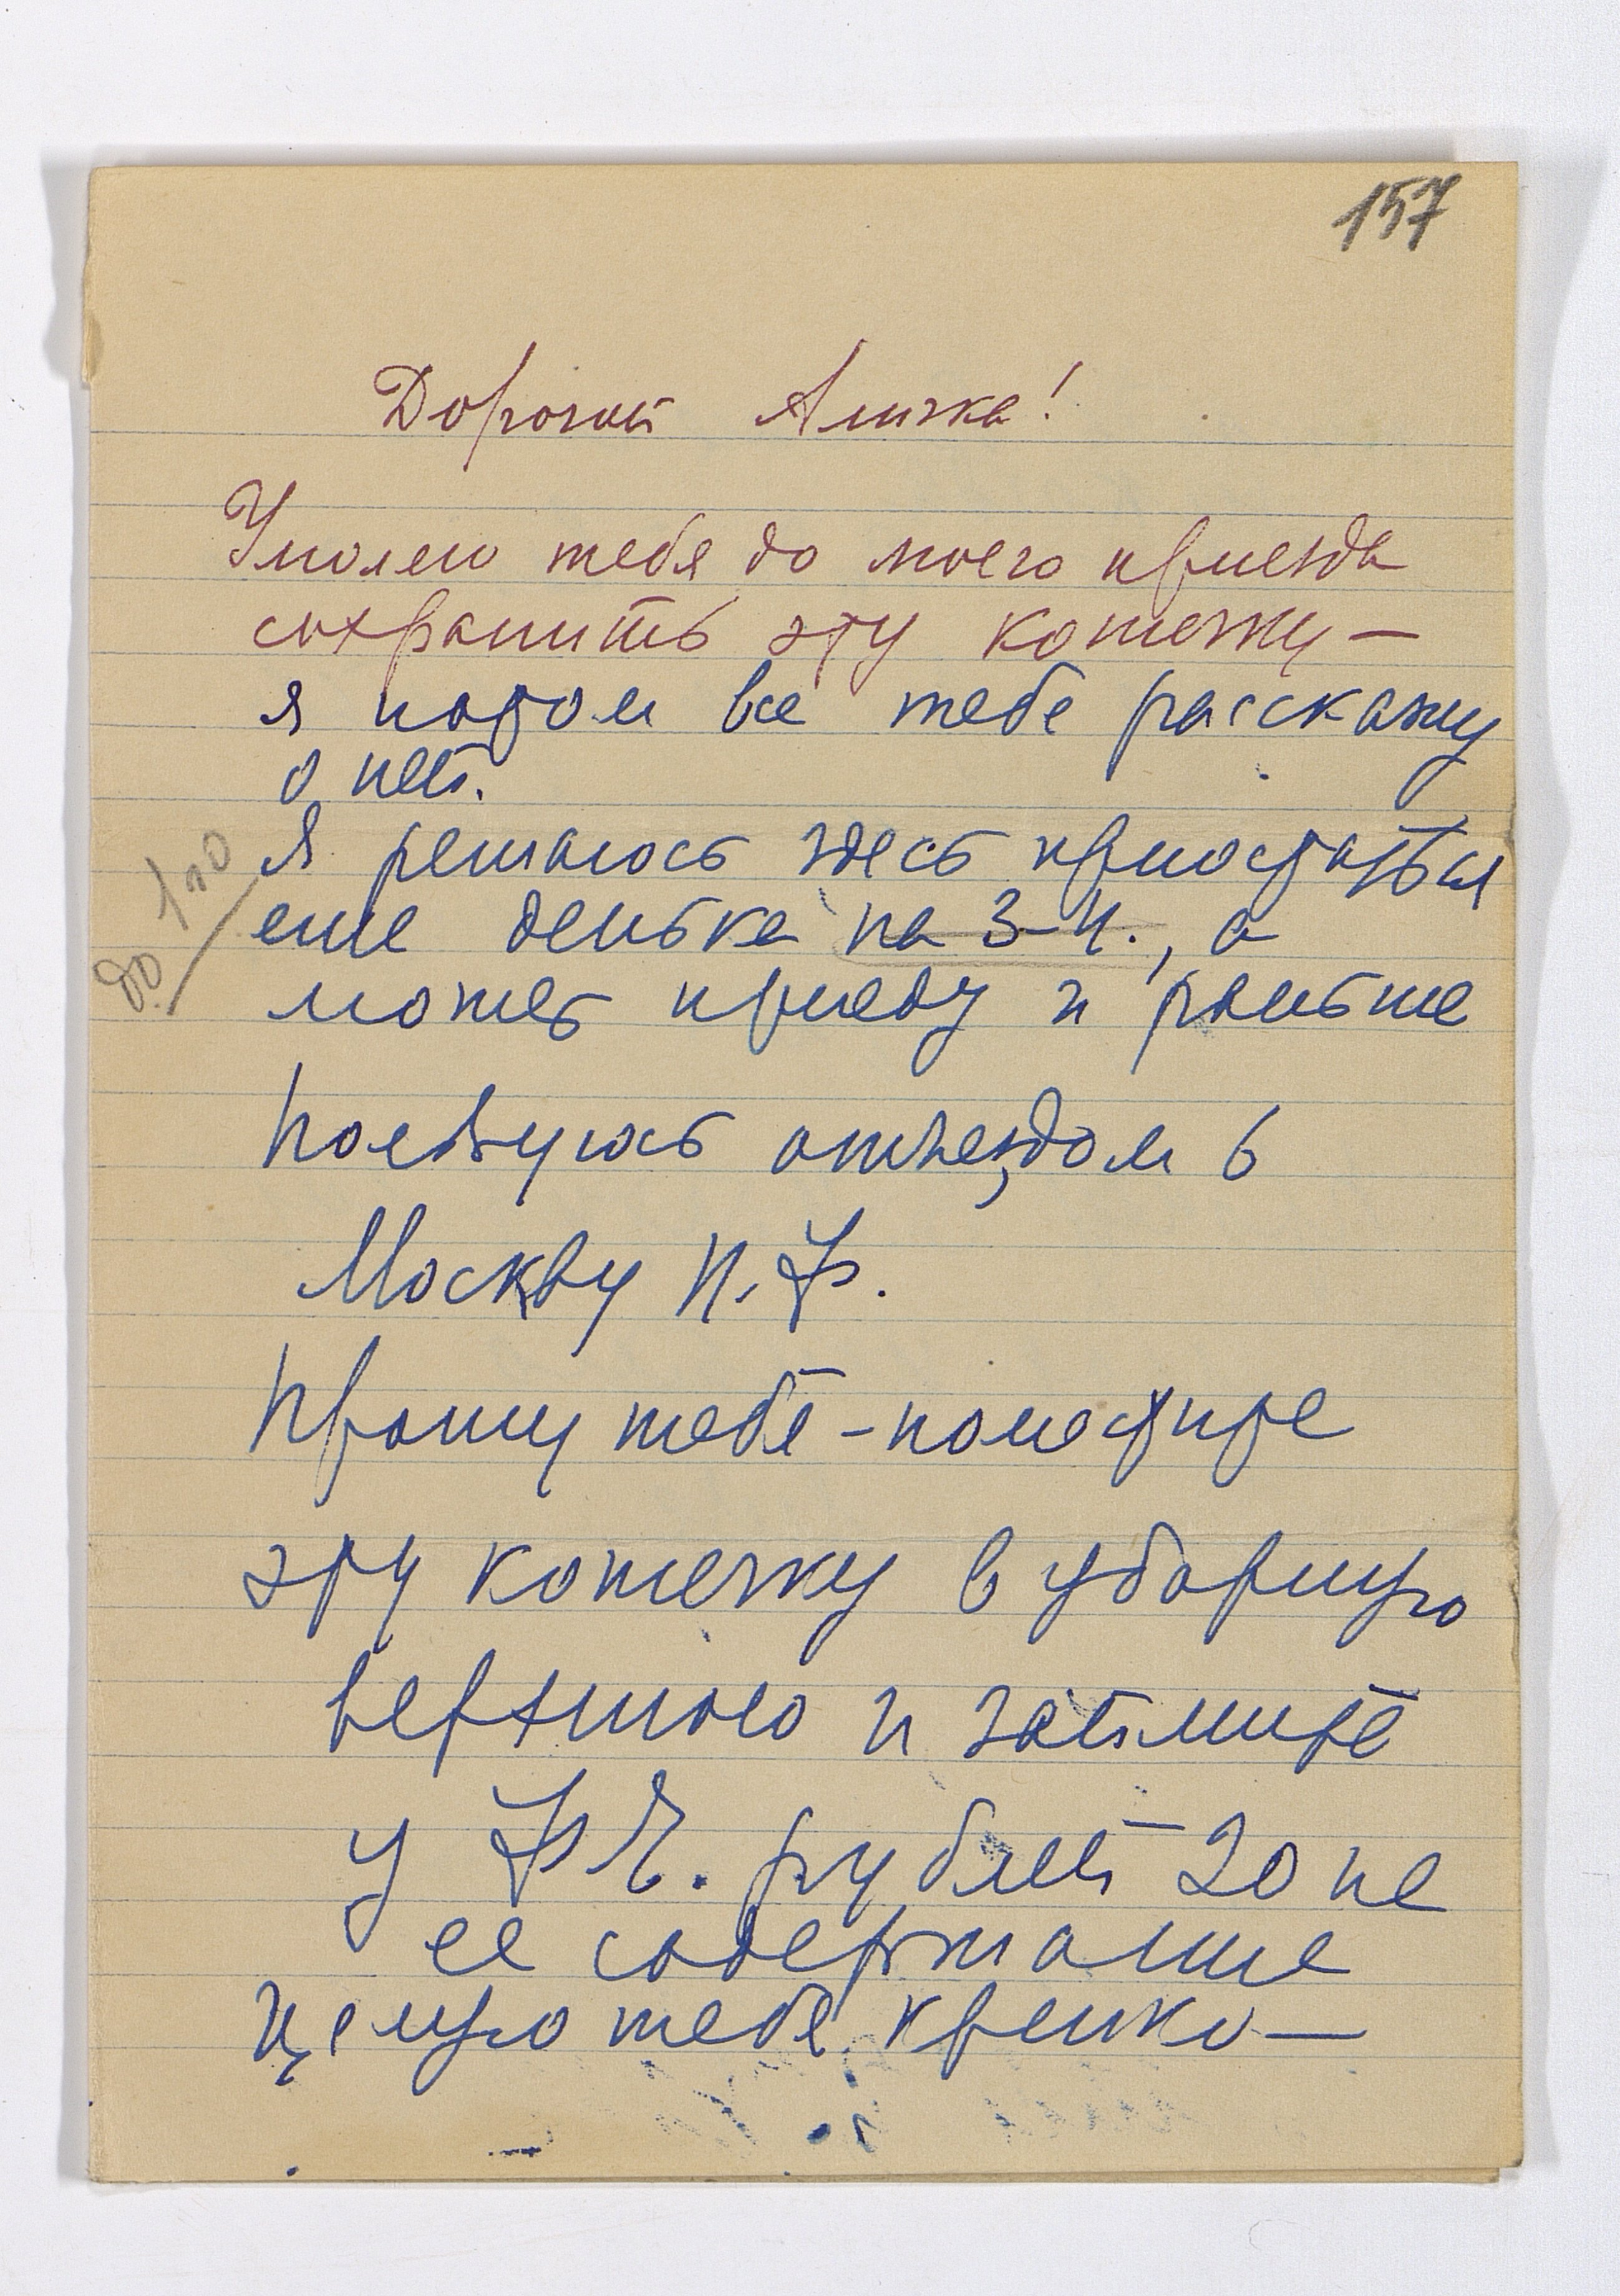 157
Дорогой Аличка!
Умоляю тебя до моего приезда
сохранить эту кошечку —
я потом все тебе расскажу
о ней.
Я решаюсь здесь приостаться
еще денька на 3-4., а
может приеду и раньше
Пользуюсь отъездом в
Москву П. Ф.
Прошу тебя - поместите
эту кошечку в уборную
верхнюю и займите
у Ф. рублей 20 на
ее содержание
Целую тебя крепко —